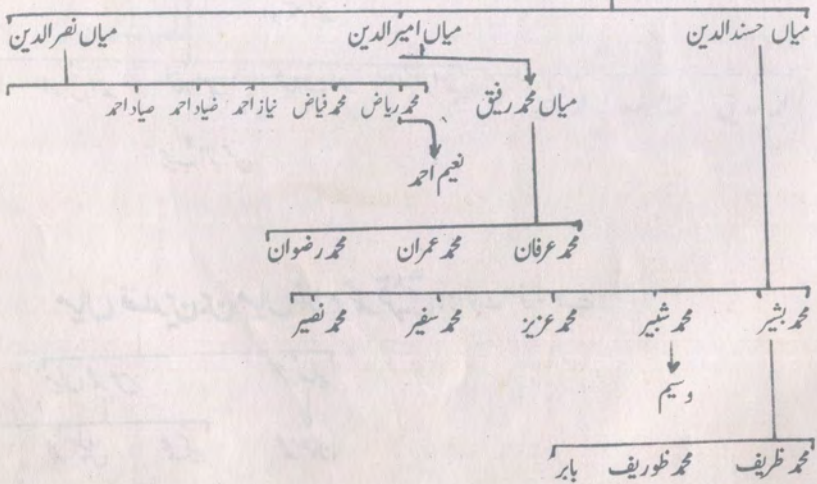 میاں حسند الدین میاں امیر الدین میاں نصر الدین
میاں محمد رفیق محمد ریاض محمد فیاض نیاز احمد ضیاد احمد صیاد احمد
نعیم احمد
محمد عرفان محمد عمران محمد رضوان
محمد بشیر محمد شبیر محمد عزیز محمد سفیر محمد نصیر
وسیم
محمد ظریف محمد ظوریف بابر